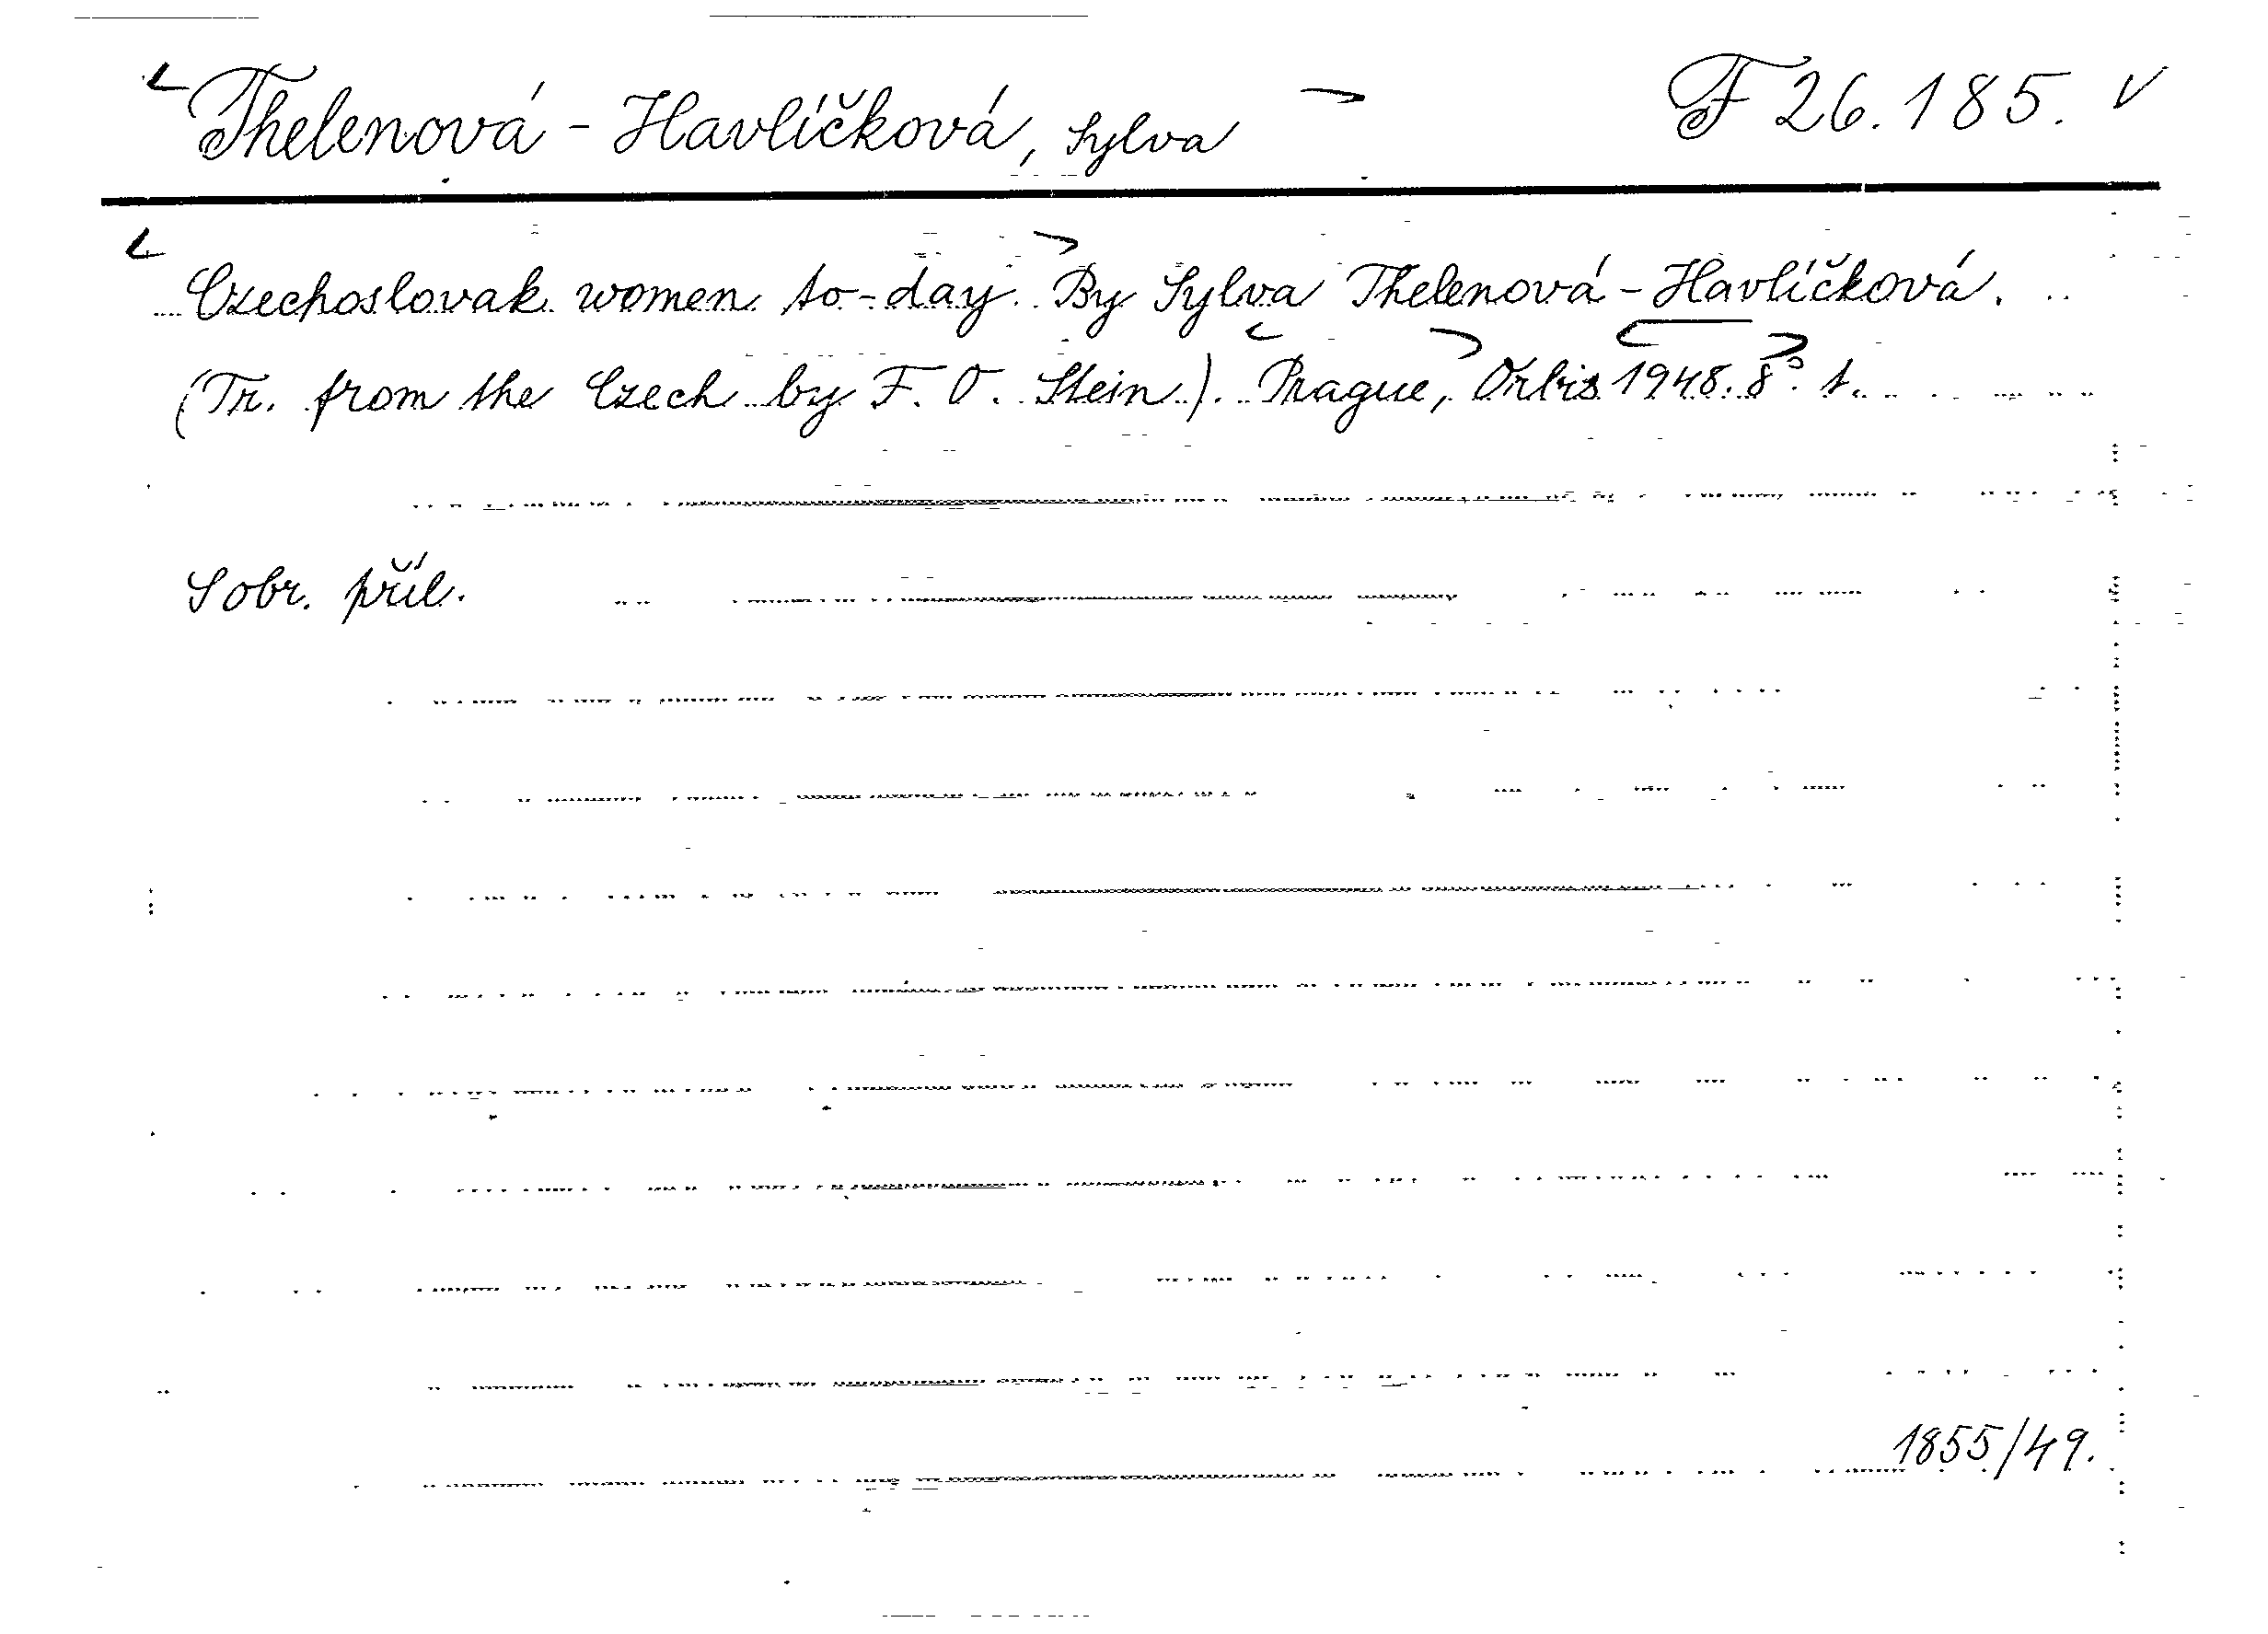 Thelenová - Havlíčková, Sylva F 26.185.
Czechoslovak women to-day. By Sylva Thelenová - Havlíčková.
(Tr. from the Czech by F. O. Stein.). Prague, Orbis 1948. 8°. 1.
S obr. příl.
1855/49.